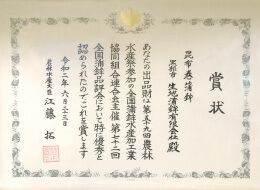 賞状
昆布巻蒲鉾
黒部市 生地蒲鉾有限会社 殿
あなたの出品財は第五十九回農林
水産祭参加の全国蒲鉾水産加工業
協同組合連合会主催第七十二回
全国蒲鉾品評会において特に優秀と
認められたのでこれを賞します
令和二年六月二十三日
農林水産大臣 江藤 拓